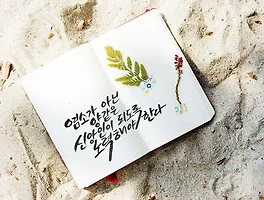 염소가 아닌
양같은
신앙인이 되도록
노력해야 한다